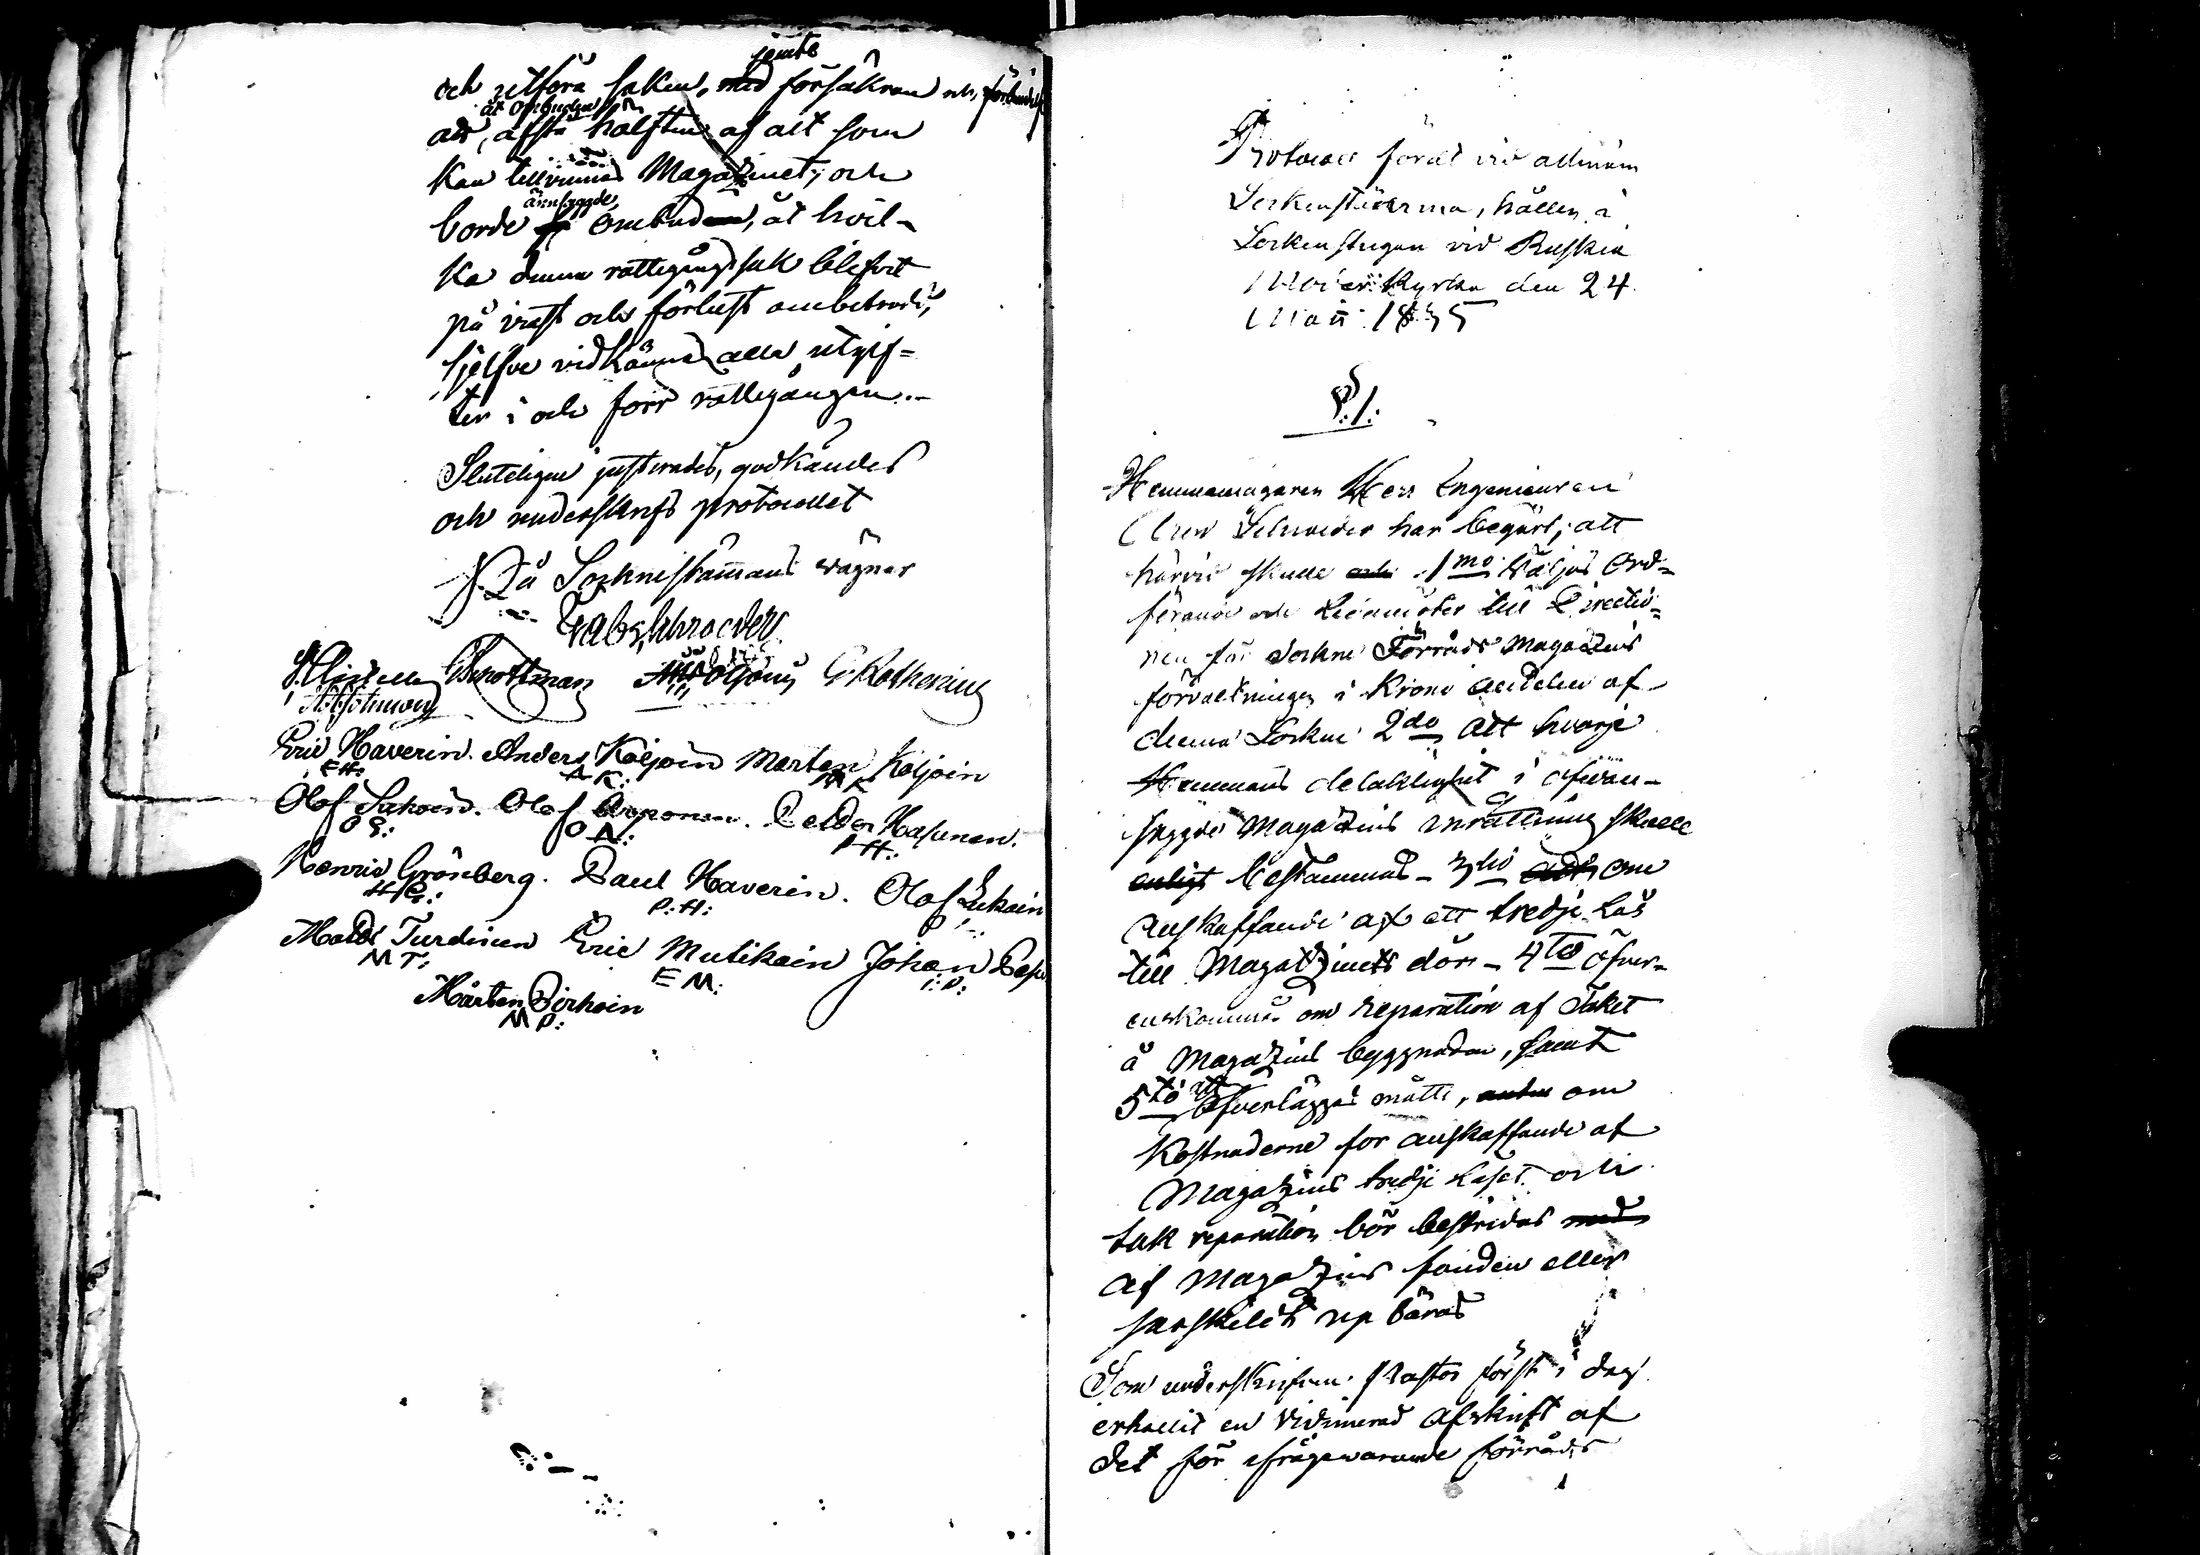 jemte
och utföra saken, med försäkran och förbindelse
åt Ombuden
att, afstå hälften af alt som
kan tillvinnas Magazinet; och
ännsagde,
borde Ombuden, åt hvil-
ka denna rättegångs sak blifvit
på vinst och förlust ombetrodd,
sjelfve vidkännas alla utgif-
ter i och förr rättegången.-
Sluteligen justerades, godkändes
och underskrefs protocollet
På Socknestämmans vägnar
Fab Schroeder
G Rothening
Eric Haverin. Anders Koljoin Marten Koljoin
E H: A K: M K
Olof Sukoin. Olof Arponen. Pedor Hasunen.
O S: O A: P H:
Henric Grönberg. Paul Haverin. Olof Sukoin
H G: P: H:
Mats Turdinen Eric Mutikain Johan
M T: E M: I: P:
Mårten Pirhoin
M P:
Protocoll fördt vid allmän
Sockenstämma, hållen i
Sockenstugan vid Ruskiala
Moder Kyrka den 24
Maii 1835
§. 1.
Hemmansägaren Herr Ingenieuren
Schneider har begärt, att
härvid skulle och 1mo väljas Ord-
förande och Ledamöter till Directio-
nen för Sockne Förråds Magazins
förvaltningen i Krono andelen af
denna Socken 2do att hvarje
Hemmans delaktighet i ofvan-
sagde Magazins inrättning skulle
enligt bestämmas - 3tio om
anskaffande af ett tredje Lås
till Magazinets dörr - 4to öfver-
enskommas om reparation af Taket
å Magazins byggnaden, samt
5to att öfverläggas måtte, om
Kostnaderne för anskaffande af
Magazins tredje Låset och
tak reparation bör bestridas med
af Magazins fonden eller
särskildt up bäras
Som underskrifven Pastor först i dag
erhållit en vidimerad afskrift af
det för ifrågavarande förråds